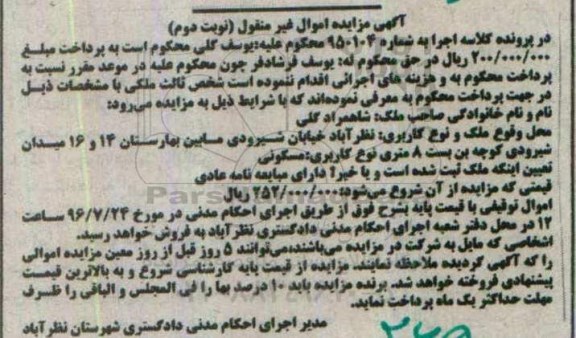 آگهی مزایده اموال غیر منقول (نوبت دوم)
در پرونده کلاسه اجرا به شماره ۹۵۰۱۰۴ محکوم علیه:یوسف گلی محکوم است به پرداخت مبلغ
۲۰۰/۰۰۰/۰۰۰ ریال در حق محکوم له: یوسف فرشادفر چون محکوم علیه در موعد مقرر نسبت به
پرداخت محکوم به و هزینه های اجرائی اقدام ننموده است شخص ثالث ملکی با مشخصات ذیل
در جهت پرداخت محکوم به معرفی نموده‌اند که با شرایط ذیل به مزایده می‌رود:
نام و نام خانوادگی صاحب ملک: شاهمراد گلی
محل وقوع ملک و نوع کاربری: نظرآباد خیابان شیرودی مابین بهارستان ۱۴ و ۱۶ میدان
شیرودی کوچه بن بست ۸ متری نوع کاربری:مسکونی
تعیین اینکه ملک ثبت شده است و یا خیر؟ دارای مبایعه نامه عادی
قیمتی که مزایده از آن شروع می‌شود: ۲۵۲/۰۰۰/۰۰۰ ریال
اموال توقیفی با قیمت پایه بشرح فوق از طریق اجرای احکام مدنی در مورخ ۹۶/۷/۲۴ ساعت
۱۲ در محل دفتر شعبه اجرای احکام مدنی دادگستری نظرآباد به فروش خواهد رسید.
اشخاصی که مایل به شرکت در مزایده می‌باشند،می‌توانند ۵ روز قبل از روز معین مزایده اموالی
را که آگهی گردیده ملاحظه نمایند. مزایده از قیمت پایه کارشناسی شروع و به بالاترین قیمت
پیشنهادی فروخته خواهد شد. برنده مزایده باید ۱۰ درصد بها را فی المجلس و الباقی را ظرف
مهلت حداکثر یک ماه پرداخت نماید.
مدیر اجرای احکام مدنی دادگستری شهرستان نظرآباد